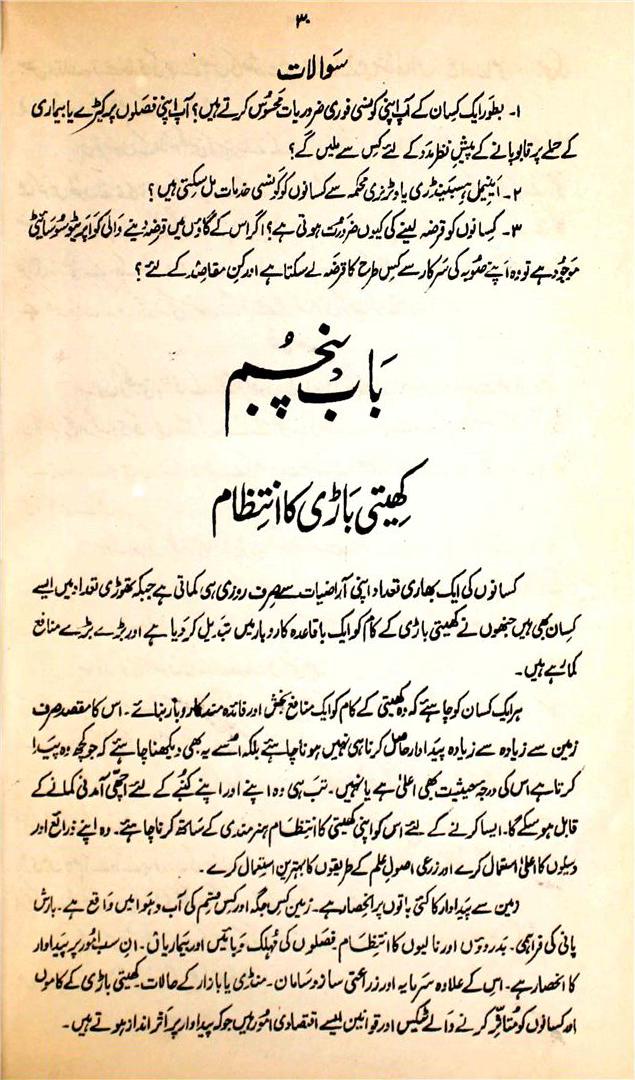 ۳۰
سوالات
۱۔ بطور ایک کسان کے آپ اپنی کونسی فوری ضروریات محسوس کرتے ہیں؟ آپ اپنی فصلوں پر کیڑے یا بیماری
کے حملے پر قابو پانے کے پیش نظر مدد کے لئے کس سے ملیں گے؟
۲۔ اینیمل ہسبینڈری یا وٹرنری محکمہ سے کسانوں کو کونسی خدمات مل سکتی ہیں؟
۳۔ کسانوں کو قرضہ لینے کی کیوں ضرورت ہوتی ہے؟ اگر اس کے گاؤں میں قرضہ دینے والی کوآپریٹو سوسائیٹی
موجود ہے تو وہ اپنے صوبہ کی سرکار سے کس طرح کا قرضہ لے سکتا ہے اور کن مقاصد کے لئے؟
باب پنجم
کھیتی باڑی کا انتظام
کسانوں کی ایک بھاری تعداد اپنی آراضیات سے صرف روزی ہی کماتی ہے جبکہ تھوڑی تعداد میں ایسے
کسان بھی ہیں جنھوں نے کھیتی باڑی کے کام کو ایک باقاعدہ کاروبار میں تبدیل کر دیا ہے اور بڑے بڑے منافع
کما رہے ہیں۔
ہر ایک کسان کو چاہئے کہ وہ کھیتی کے کام کو ایک منافع بخش اور فائدہ مند کاروبار بنائے۔ اس کا مقصد صرف
زمین سے زیادہ سے زیادہ پیداوار حاصل کرنا ہی نہیں ہونا چاہئے بلکہ اسے یہ بھی دیکھنا چاہئے کہ جو کچھ وہ پیدا
کرتا ہے اس کی درجہ حیثیت بھی اعلیٰ ہے یا نہیں۔ تب ہی وہ اپنے اور اپنے کنبے کے لئے اچھی آمدنی کمانے کے
قابل ہو سکے گا۔ ایسا کرنے کے لئے اس کو اپنی کھیتی کا انتظام ہنرمندی کے ساتھ کرنا چاہئے۔ وہ اپنے ذرائع اور
وسیلوں کا اعلیٰ استعمال کرے اور زرعی اصول علم کے طریقوں کا بہترین استعمال کرے۔
زمین سے پیداوار کا کئی باتوں پر انحصار ہے۔ زمین کس جگہ اور کس قسم کی آب و ہوا میں واقع ہے۔ بارش
پانی کی فراہمی۔ بدرووں اور نالیوں کا انتظام۔ فصلوں کی مہلک وبائیں اور بیماریاں۔ ان سب امور پر پیداوار
کا انحصار ہے۔ اس کے علاوہ سرمایہ اور زراعتی ساز و سامان۔ منڈی یا بازار کے حالات۔ کھیتی باڑی کے کاموں
اور کسانوں کو متاثر کرنے والے ٹیکس اور قوانین ایسے اقتصادی امور ہیں جو کہ پیداوار پر اثر انداز ہوتے ہیں۔